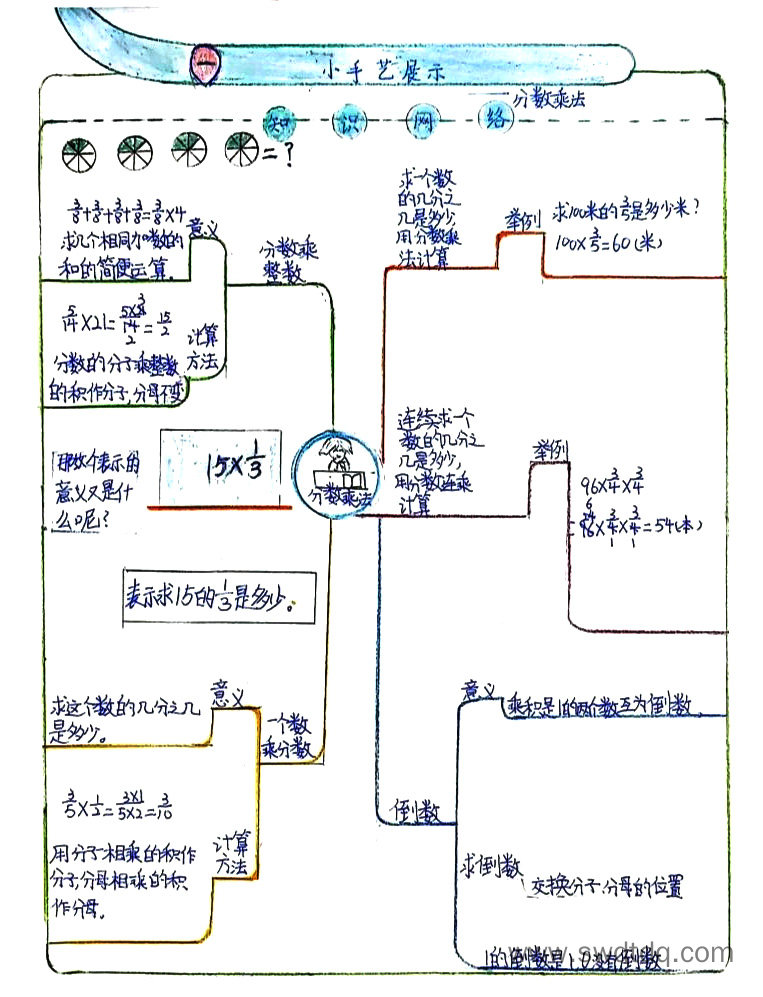 一
小手艺展示
分数乘法
知识网络
=?
3/8+3/8+3/8+3/8=3/8×4
求几个相同加数的
和的简便运算。
意义
分数乘
整数
5/14×21=5×21/14=15/2
3
2
计算
方法
分数的分子乘整数
的积作分子,分母不变
那么个表示的
意义又是什
么呢?
15×1/3
分数乘法
表示求15的1/3是多少。
求这个数的几分之几
是多少。
意义
一个数
乘分数
3/5×1/2=3×1/5×2=3/10
用分子相乘的积作
分子,分母相乘的积
作分母。
计算
方法
求一个数
的几分之
几是多少,
用分数乘
法计算
举例
求100米的3/5是多少米?
100×3/5=60(米)
连续求一个
数的几分之
几是多少,
用分数连乘
计算
举例
96×3/4×3/4
6
24
=96×3/4×3/4=54(本)
1 1
倒数
意义
乘积是1的两个数互为倒数。
求倒数
交换分子、分母的位置
1的倒数是1,0没有倒数
www.swdtdq.com